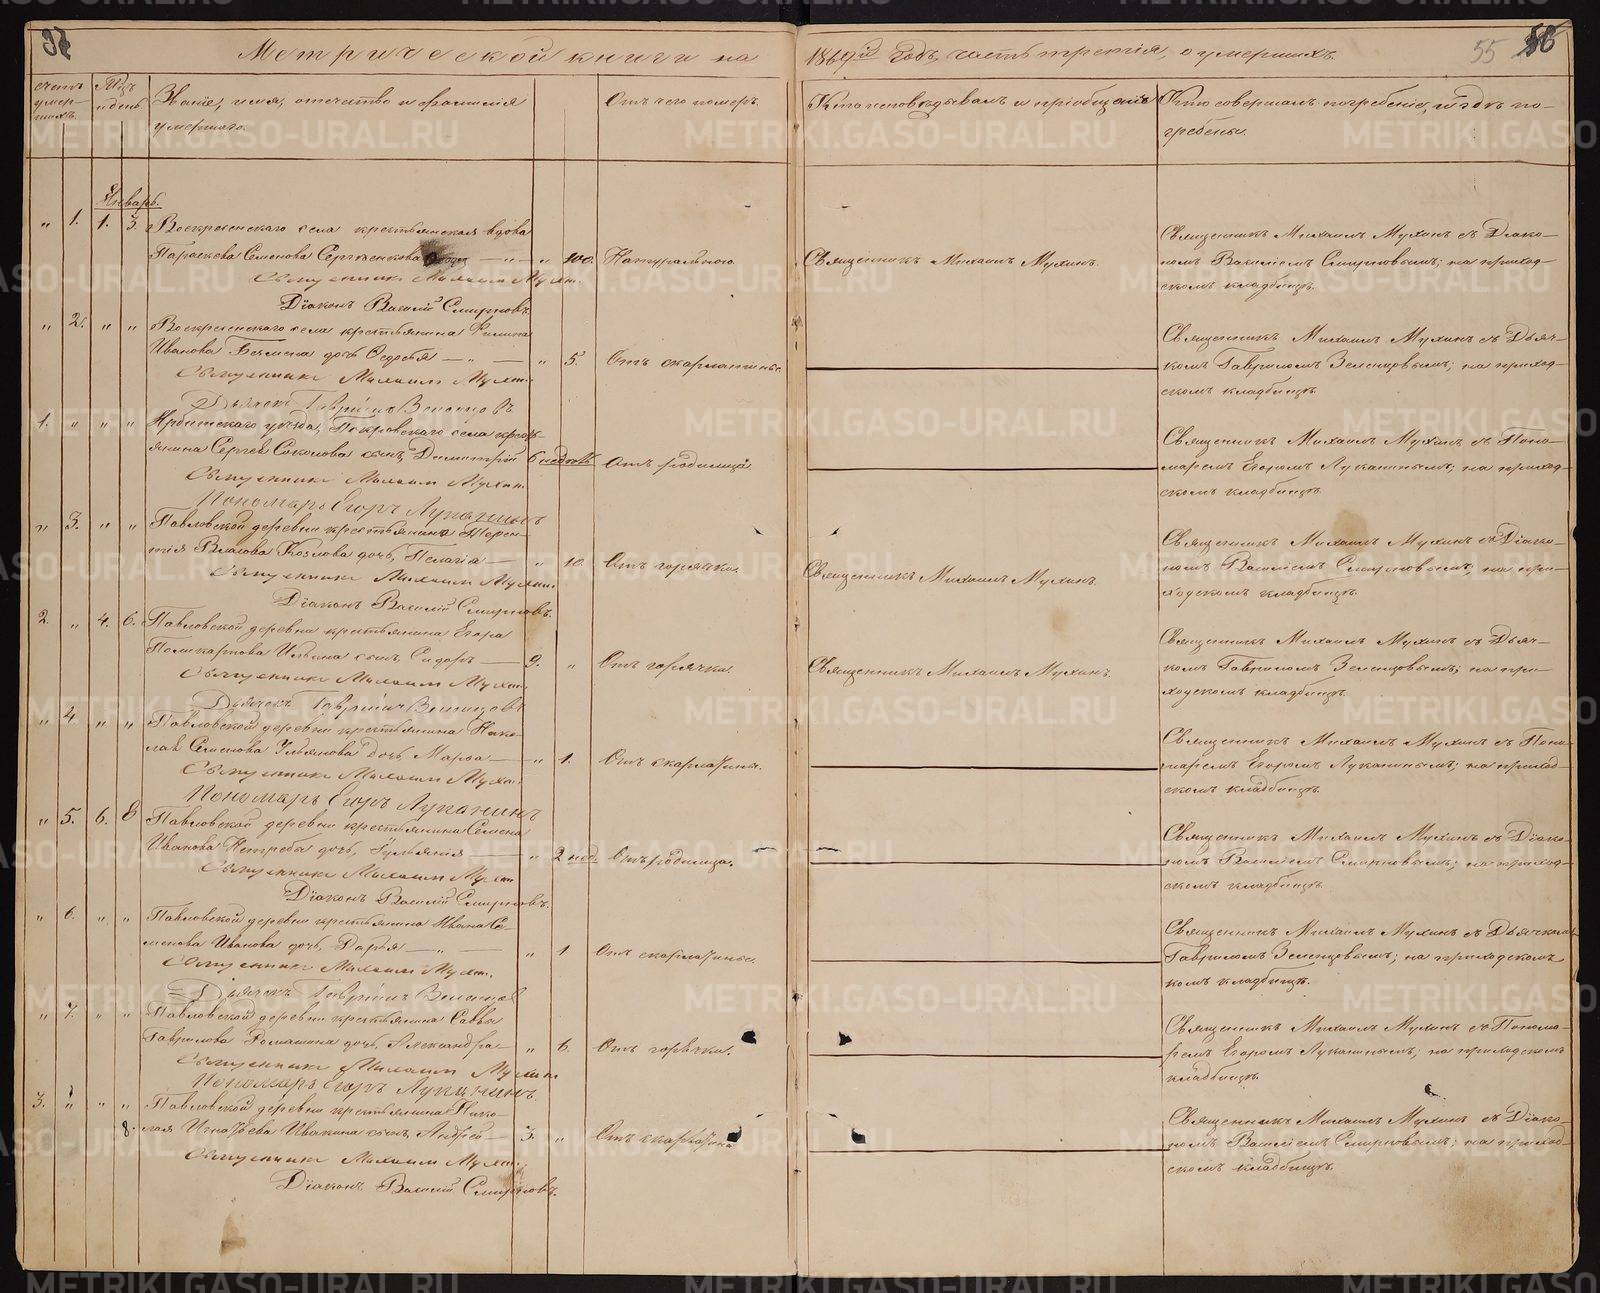 Метрической книги на
1869й годъ, часть третiя, о умершихъ.
55
счетъ умер-шихъ.
Мѣс. и день
Званiе, имя, отчество и фамилiя
умершаго.
Отъ чего померъ.
Кто исповѣдывалъ и прiобщалъ
Кто совершалъ погребенiе, и гдѣ по-
гребены.
Январь.
„ 1. 1. 3. Воскресенскаго села крестьянская вдова
Параскева Семенова — „ — „ 100. Натуральною.
Священникъ Михаилъ Мухинъ.
Дiаконъ Василiй Смирновъ
Священникъ Михаилъ Мухинъ.
Священникъ Михаилъ Мухинъ съ Дiако-
номъ Василiемъ Смирновымъ; на приход-
скомъ кладбищѣ.
„ 2. „ „ Воскресенскаго села крестьянина Филипа
Иванова дочь — „ — „ 5. Отъ скарлатины.
Священникъ Михаилъ Мухинъ.
Дьячекъ Гаврiилъ Зеленцовъ
Священникъ Михаилъ Мухинъ съ Дьяч-
комъ Гаврiиломъ Зеленцовымъ; на приход-
скомъ кладбищѣ.
1. „ „ „ Ирбитскаго уѣзда, Покровскаго села крест-
янина Сергея Соколова сынъ, Димитрiй 6 недѣль Отъ родимца.
Священникъ Михаилъ Мухинъ.
Пономарь Егоръ Луканинъ
Священникъ Михаилъ Мухинъ съ Поно-
маремъ Егоромъ Луканинымъ; на приход-
скомъ кладбищѣ.
„ 3. „ „ Павловской деревни крестьянина Терен-
тiя Власова Козлова дочь, Пелагiя — „ 10. Отъ горячки.
Священникъ Михаилъ Мухинъ
Дiаконъ Василiй Смирновъ.
Священникъ Михаилъ Мухинъ.
Священникъ Михаилъ Мухинъ съ Дiако-
номъ Василiемъ Смирновымъ; на при-
ходскомъ кладбищѣ.
2. „ 4. 6. Павловской деревни крестьянина Егора
Поликарпова Ильина сынъ, Сидоръ — 9. „ Отъ горячки.
Священникъ Михаилъ Мухинъ
Дьячекъ Гаврiилъ Зеленцовъ
Священникъ Михаилъ Мухинъ.
Священникъ Михаилъ Мухинъ съ Дьяч-
комъ Гаврiиломъ Зеленцовымъ; на при-
ходскомъ кладбищѣ.
„ 4. „ „ Павловской деревни крестьянина Нико-
лая Семенова Ульянова дочь Марѳа — „ 1. Отъ скарлатины.
Священникъ Михаилъ Мухинъ
Пономарь Егоръ Луканинъ
Священникъ Михаилъ Мухинъ съ Поно-
маремъ Егоромъ Луканинымъ; на приход-
скомъ кладбищѣ.
„ 5. 6. 8 Павловской деревни крестьянина Семена
Иванова дочь, — „ 2 нед. Отъ родимца.
Священникъ Михаилъ Мухинъ
Дiаконъ Василiй Смирновъ.
Священникъ Михаилъ Мухинъ съ Дiако-
номъ Василiемъ Смирновымъ; на приход-
скомъ кладбищѣ.
„ 6. „ „ Павловской деревни крестьянина Ивана Се-
менова Иванова дочь, Дарья — „ — „ 1 Отъ скарлатины.
Священникъ Михаилъ Мухинъ.
Дьячекъ Гаврiилъ Зеленцовъ
Священникъ Михаилъ Мухинъ съ Дьячкомъ
Гаврiиломъ Зеленцовымъ; на приходскомъ
комъ кладбищѣ.
„ 7. „ „ Павловской деревни крестьянина Саввы
Гаврилова Ромашина дочь, Александра — „ 6. Отъ горячки.
Священникъ Михаилъ Мухинъ
Пономарь Егоръ Луканинъ.
Священникъ Михаилъ Мухинъ съ Понома-
ремъ Егоромъ Луканинымъ; на приходскомъ
кладбищѣ.
3. „ „ „ Павловской деревни крестьянина Нико-
8. лая Игнатьева Ивакина сынъ, Андрей — 3. „ Отъ скарлатины
Священникъ Михаилъ Мухинъ.
Дiаконъ Василiй Смирновъ.
Священникъ Михаилъ Мухинъ съ Дiако-
номъ Василiемъ Смирновымъ; на приход-
скомъ кладбищѣ.
METRIKI.GASO-URAL.RU